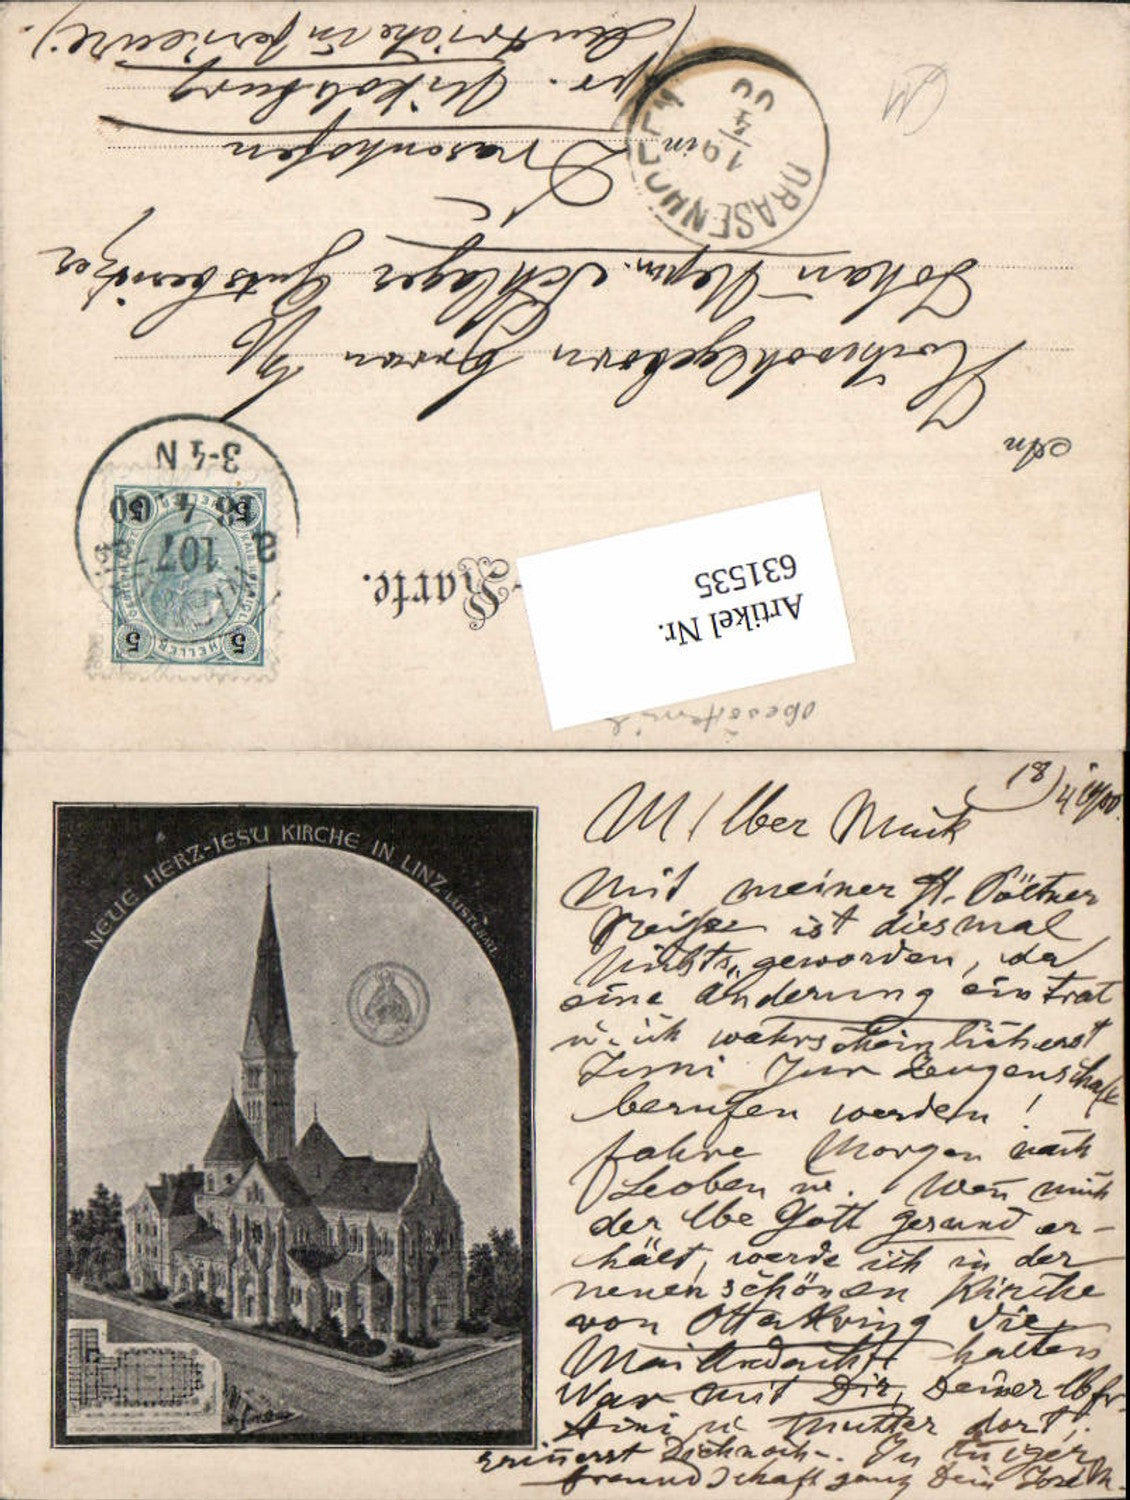 Karte.
Artikel Nr.
631535
5 HELLER 5
107
18 4 00
3-4 N
An
Hochwohlgeboren Herrn
Johan Nepm. Schlager Gutsbesitzer
in Drasenhofen
pr. Nikolsburg
DRASENHOFEN
19 4 00
NEUE HERZ-JESU KIRCHE IN LINZ
18/4 1900.
M/lber
Mit meiner St. Pöltner
Reise ist diesmal
nichts geworden, da
eine Änderung eintrat
u. ich wahrscheinlicherst
Juni zur Zeugenschaft
berufen werden!
fahre Morgen nach
Leoben u. wen mich
der lbe Gott gesund er-
hält, werde ich in der
neuen schönen Kirche
von Ottakring die
Maiandacht halten
War mit Dir, Deiner lb
u Mutter dort,
erinerst Dich noch. In iniger
freundschaft ganz Dein